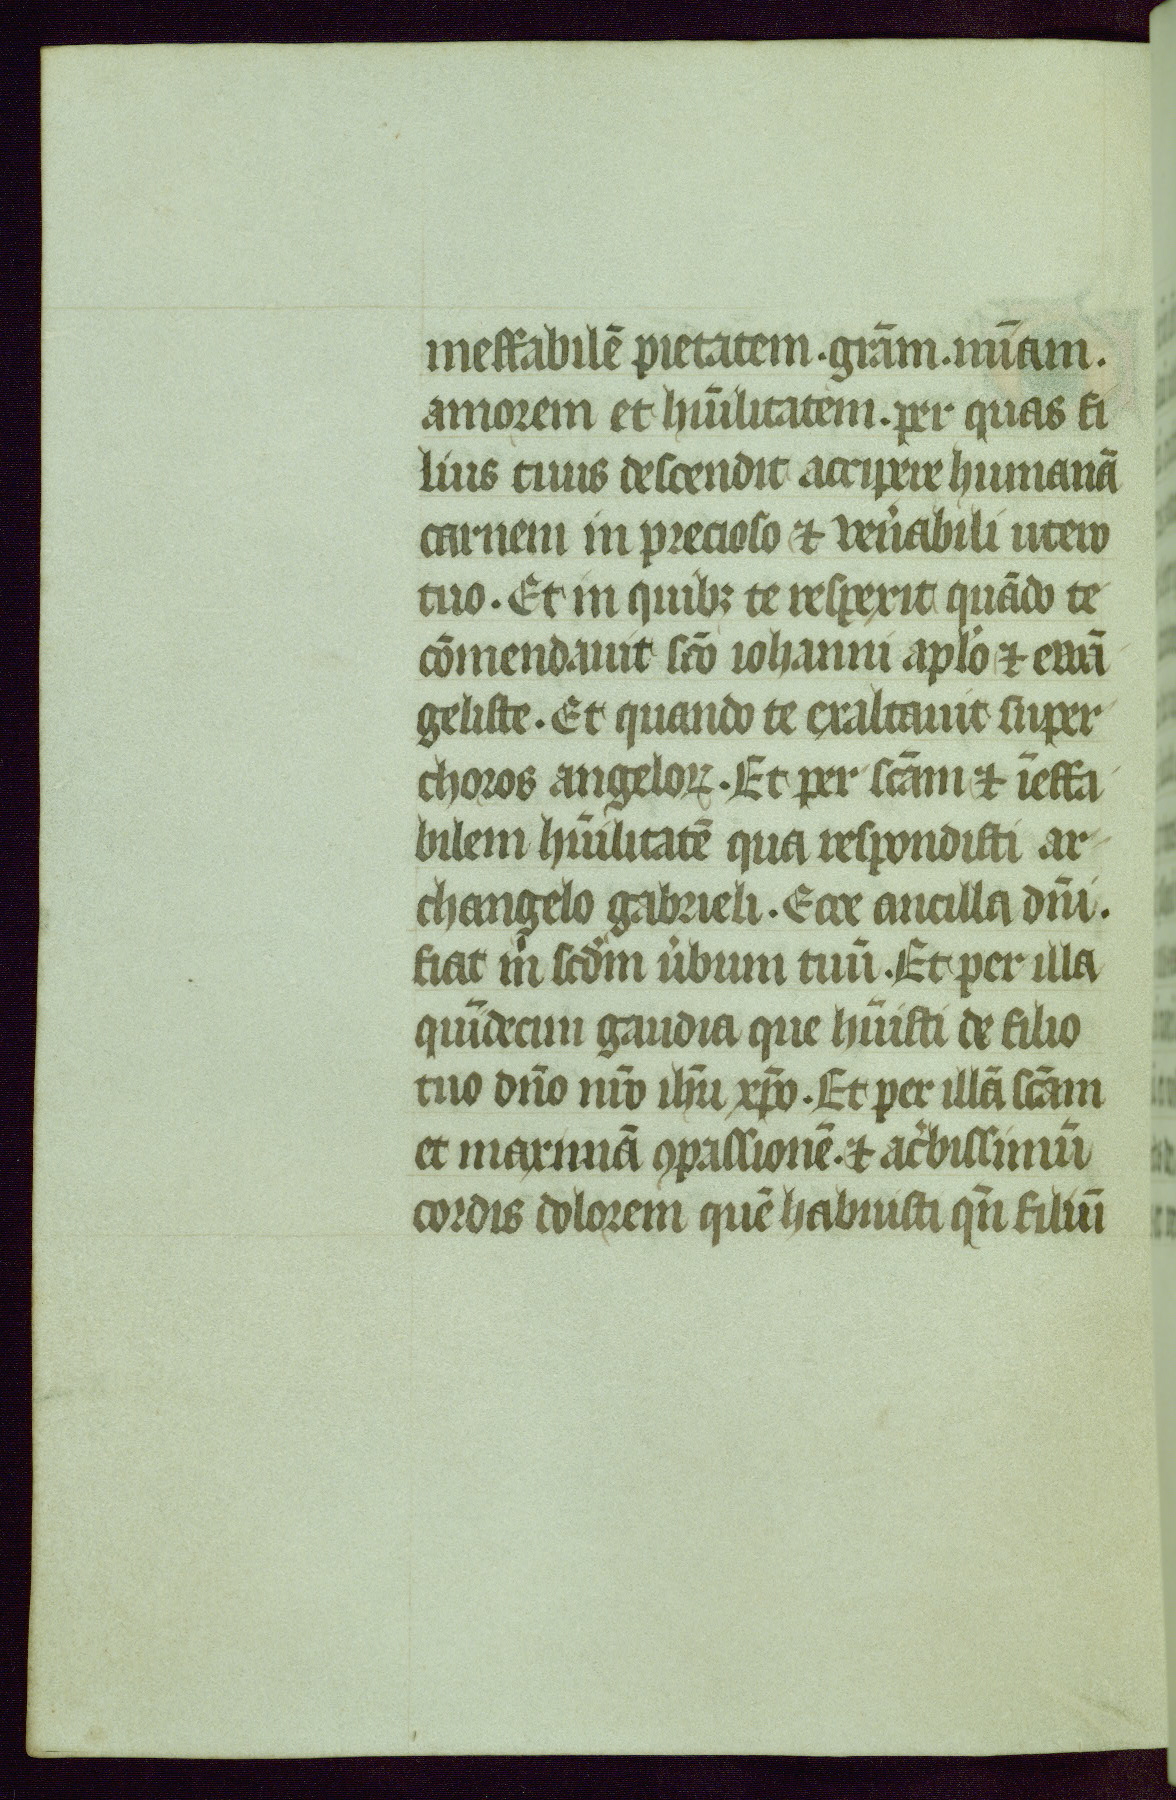 ineffabilē pietatem. grām. mīam.
amorem et hūilitatem. per quas fi
lius tuus descendit accipere humanā
carnem in precioso ⁊ ven̉abili utero
tuo. Et in quibꝫ te respexit quādo te
cōmendauit sc̄o iohanni apl̉o ⁊ ewā
geliste. Et quando te exaltauit super
choros angeloꝝ. Et per sc̄am ⁊ īeffa
bilem hūilitatē qua respondisti ar
changelo gabrieli. Ecce ancilla dn̄i.
fiat m̉ scd̉m ủbum tuū. Et per illa
quīdecim gaudia que hūisti de filio
tuo dn̄o nr̄o ihū xp̄o. Et per illā sc̄am
et maximā ꝯpassionē. ⁊ ac̉bissimū
cordis dolorem quē habuisti qn̄ filiū